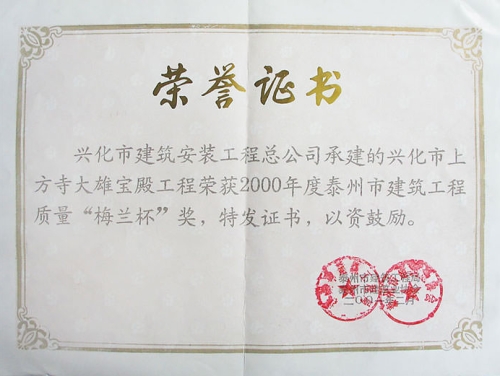 荣誉证书
兴化市建筑安装工程总公司承建的兴化市上
方寺大雄宝殿工程荣获2000年度泰州市建筑工程
质量“梅兰杯”奖，特发证书，以资鼓励。
泰州市建筑工程
二〇〇一年二月